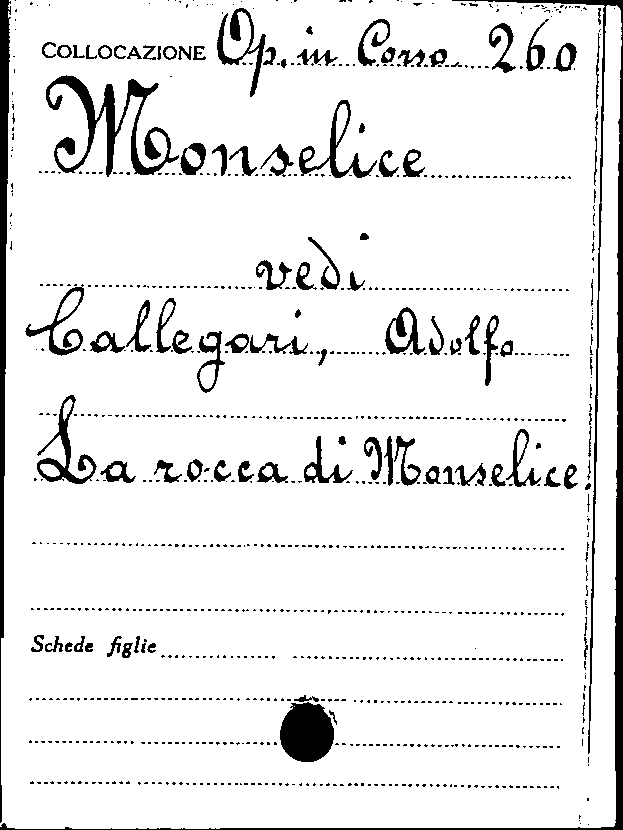 COLLOCAZIONE Op. in Corso 260
Monselice
vedi
Callegari, Adolfo
La rocca di Monselice.
Schede figlie